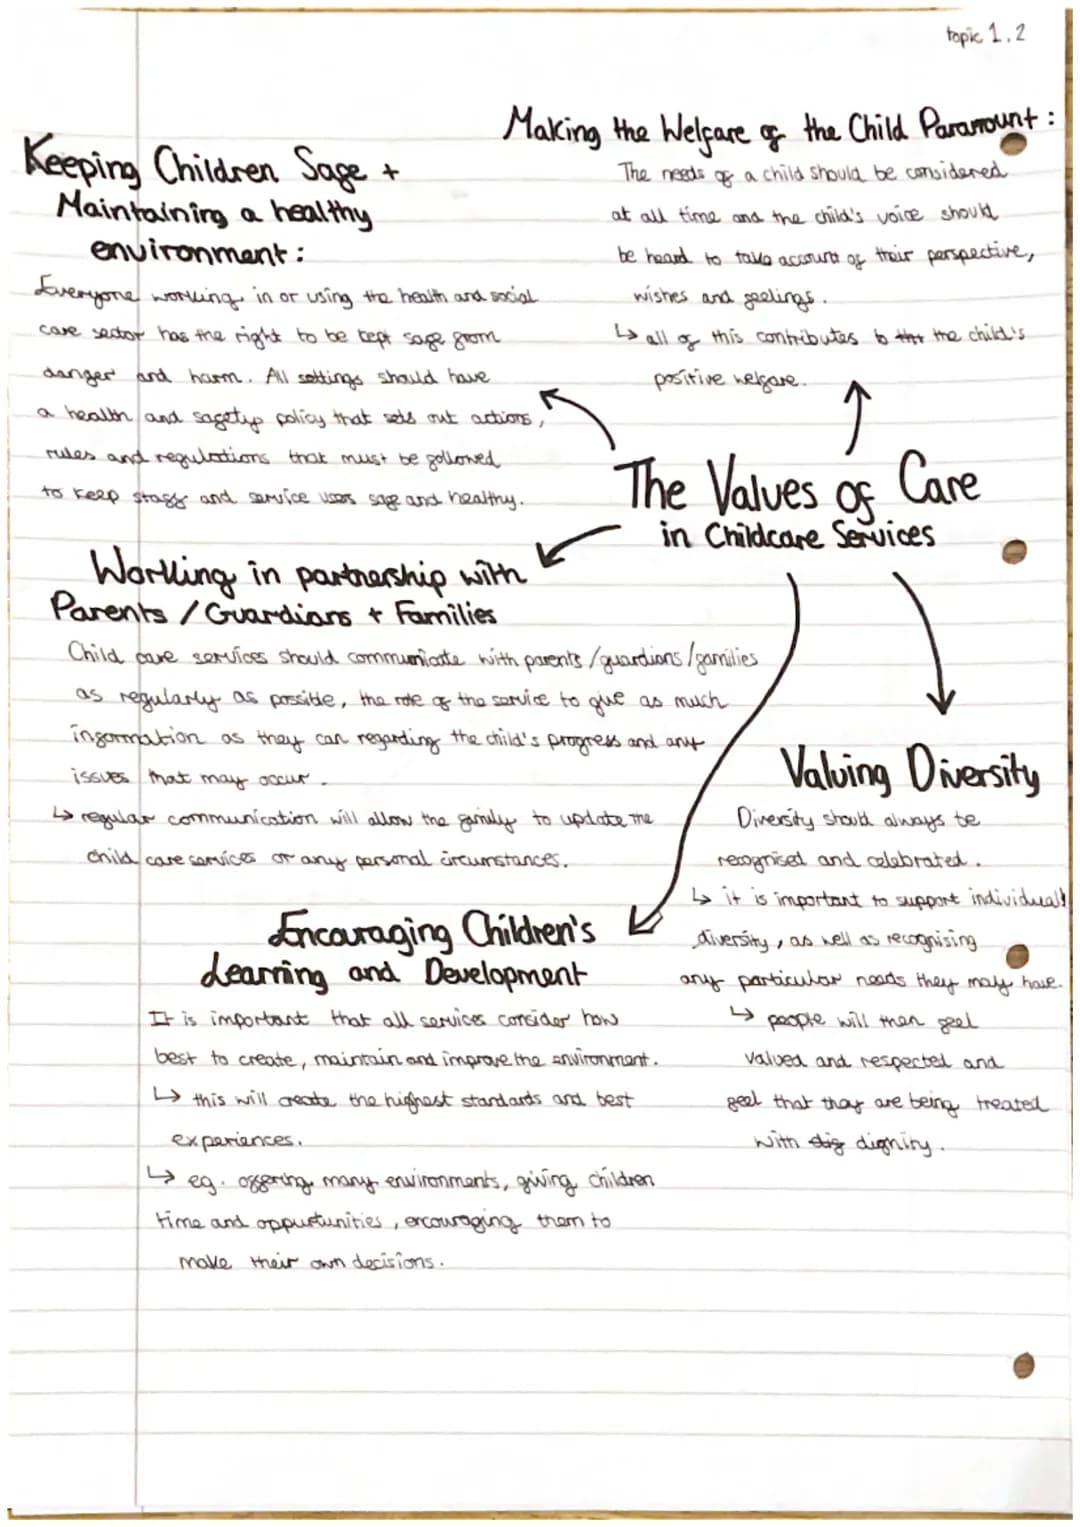 topic 1.2
Making the Welfare of the Child Paramount :
The needs of a child should be considered
at all time and the child's voice should
be heard to take account of their perspective,
wishes and feelings.
↳ all of this contributes to the the child's
positive welfare.
Keeping Children Safe +
Maintaining a healthy
environment :
Everyone working in or using the health and social
care sector has the right to be kept safe from
danger and harm. All settings should have
a health and safety policy that sets out actions,
rules and regulations that must be followed
to keep staff and service users safe and healthy.
The Values of Care
in Childcare Services
Working in partnership with
Parents / Guardians + Families
Child care services should communicate with parents/guardians/families
as regularly as possible, the role of the service to give as much
information as they can regarding the child's progress and any
issues that may occur.
↳ regular communication will allow the family to update the
child care services or any personal circumstances.
Valuing Diversity
Diversity should always be
recognised and celebrated.
↳ it is important to support individual
diversity, as well as recognising
any particular needs they may have.
↳ people will then feel
valued and respected and
feel that they are being treated
with dig dignity.
Encouraging Children's
Learning and Development
It is important that all services consider how
best to create, maintain and improve the environment.
↳ this will create the highest standards and best
experiences.
↳ eg. offering many environments, giving children
time and oppurtunities, encouraging them to
make their own decisions.